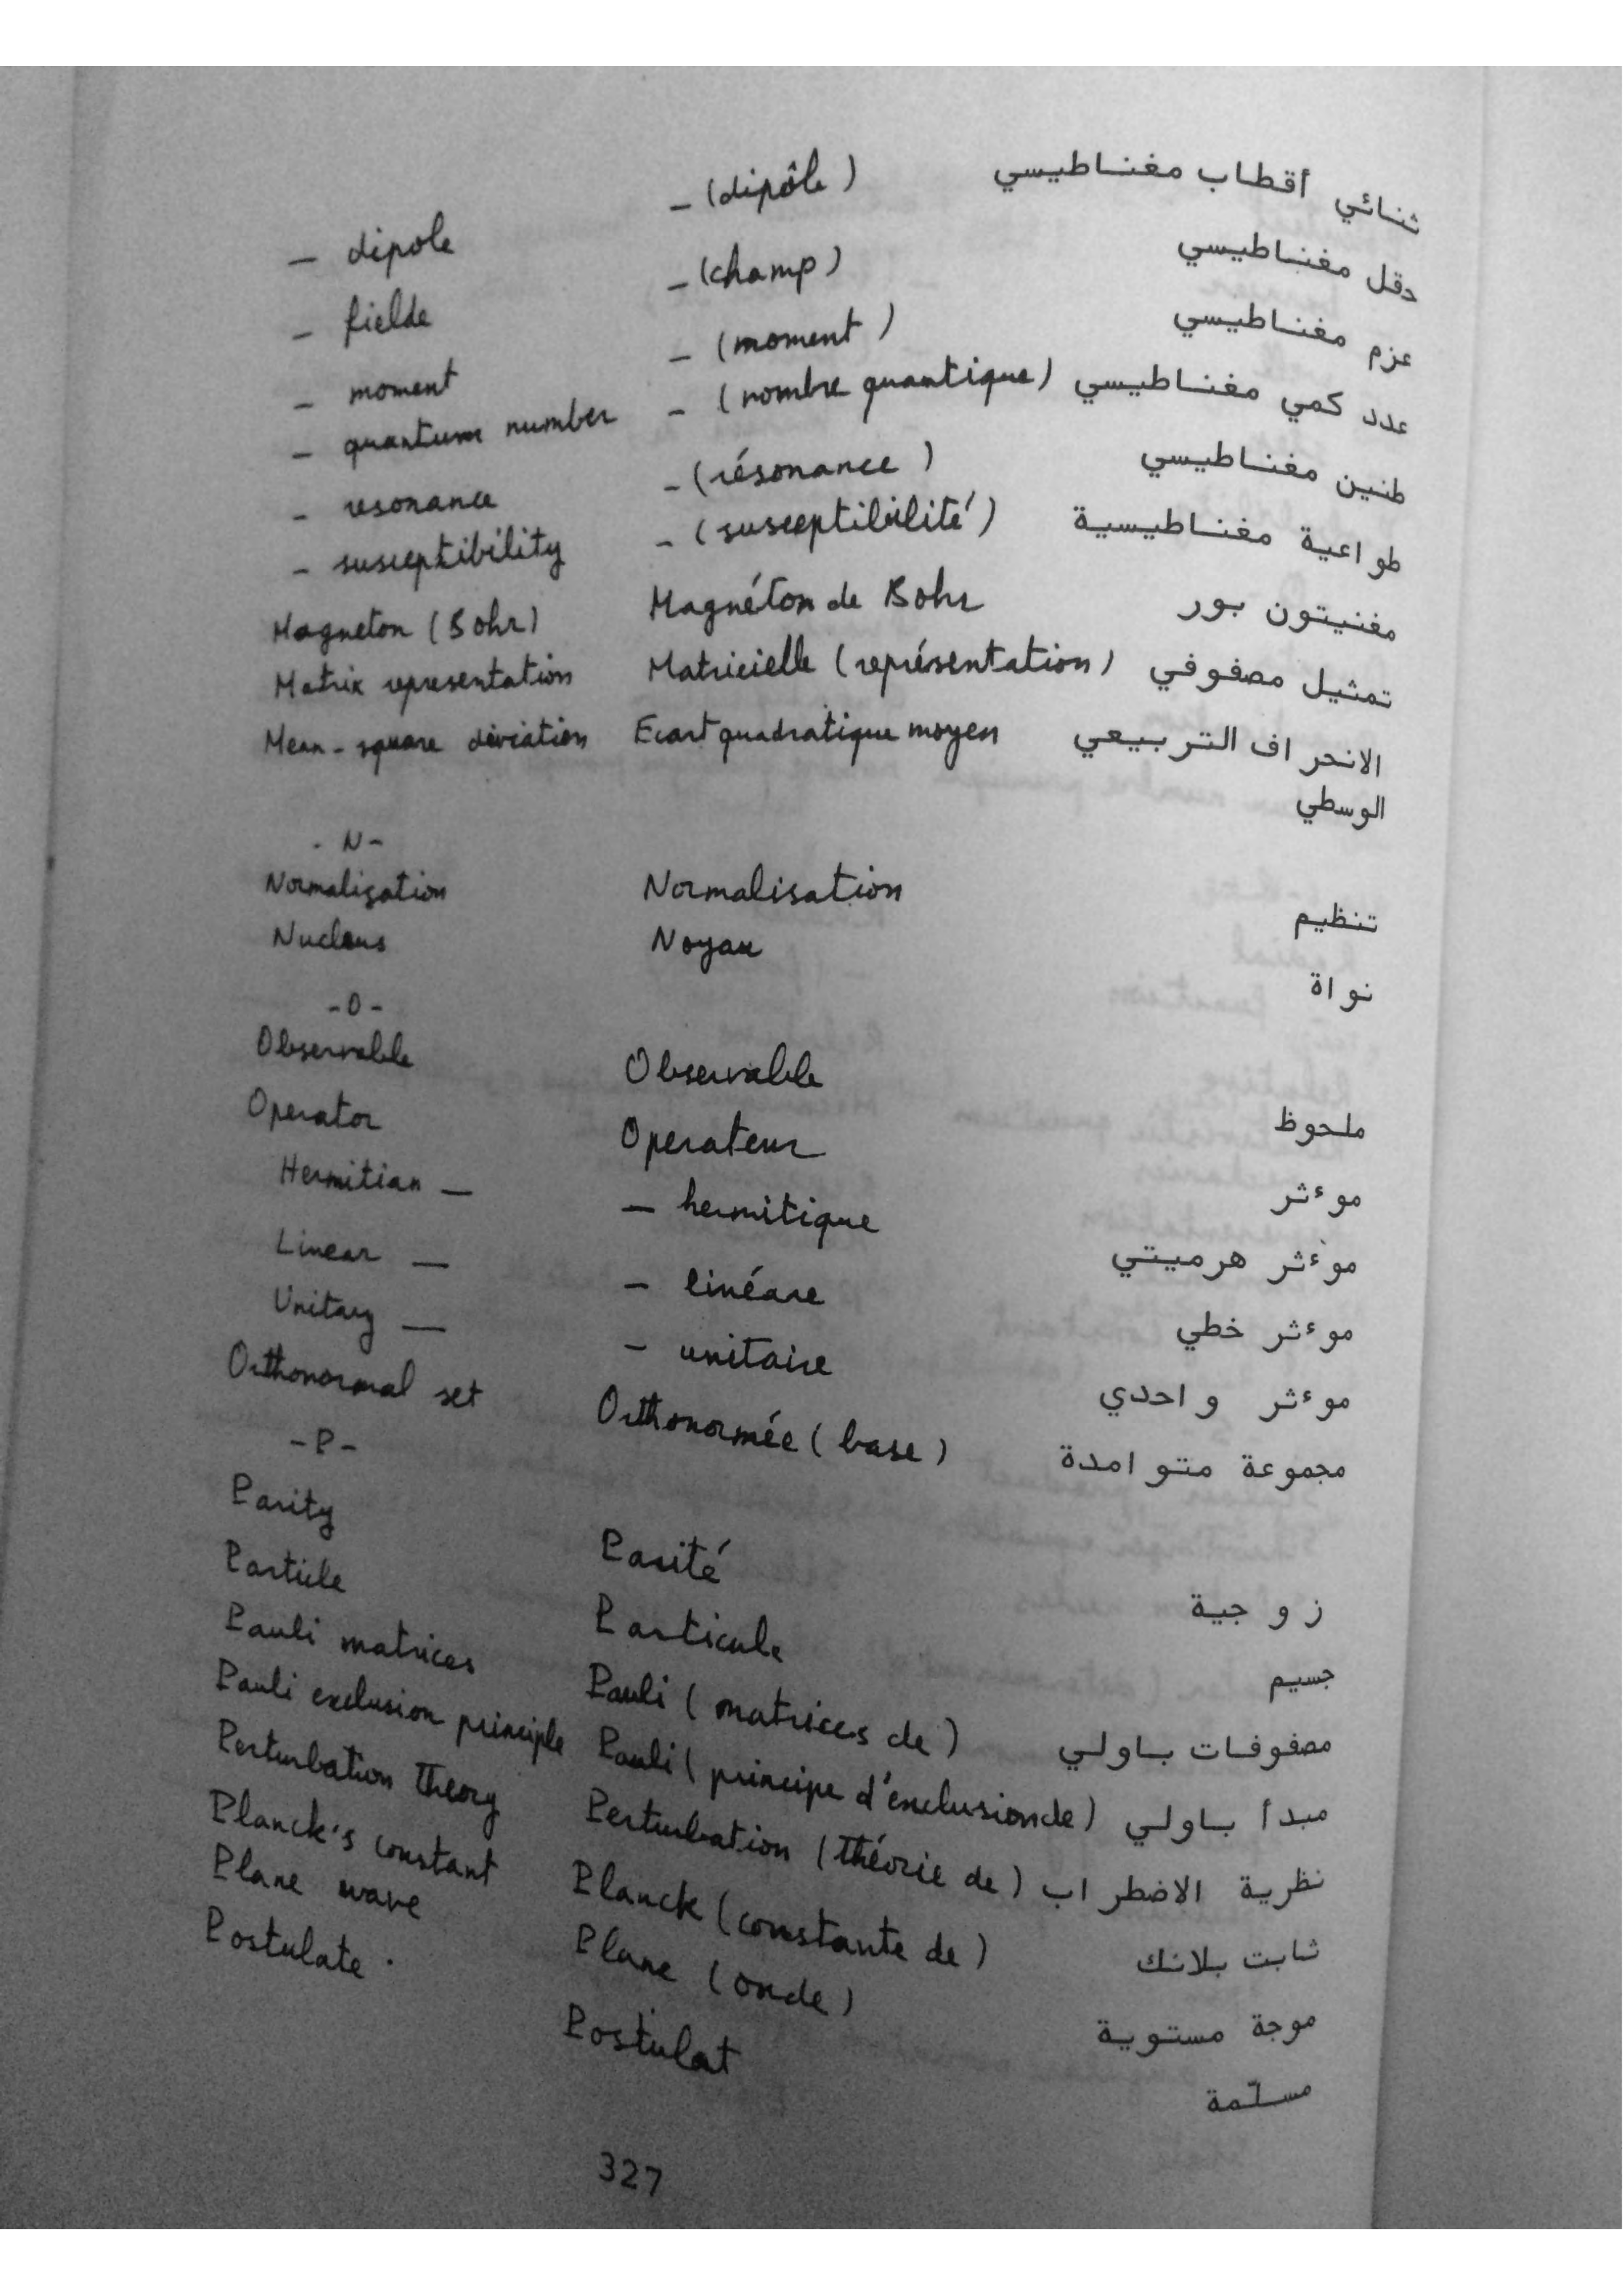 – dipole – (dipôle) ثنائي أقطاب مغناطيسي
– fielde – (champ) حقل مغناطيسي
– moment – (moment) عزم مغناطيسي
– quantum number – (nombre quantique) عدد كمي مغناطيسي
– resonance – (résonance) طنين مغناطيسي
– susceptibility – (susceptibilité) طواعية مغناطيسية
Magneton (Bohr) Magnéton de Bohr مغنيتون بور
Matrix representation Matricielle (représentation) تمثيل مصفوفي
Mean-square deviation Ecart quadratique moyen الانحراف التربيعي
الوسطي
- N -
Normalization Normalisation تنظيم
Nucleus Noyau نواة
- O -
Observable Observable ملحوظ
Operator Operateur موءثر
Hermitian – – hermitique موءثر هرميتي
Linear – – linéare موءثر خطي
Unitary – – unitaire موءثر واحدي
Orthonormal set Orthonormée (base) مجموعة متوامدة
- P -
Parity Parité زوجية
Particle Particule جسيم
Pauli matrices Pauli (matrices de) مصفوفات باولي
Pauli exclusion principle Pauli (principe d'exclusion de) مبدأ باولي
Perturbation theory Perturbation (théorie de) نظرية الاضطراب
Planck's constant Planck (constante de) ثابت بلانك
Plane wave Plane (onde) موجة مستوية
Postulate. Postulat مسلّمة
327